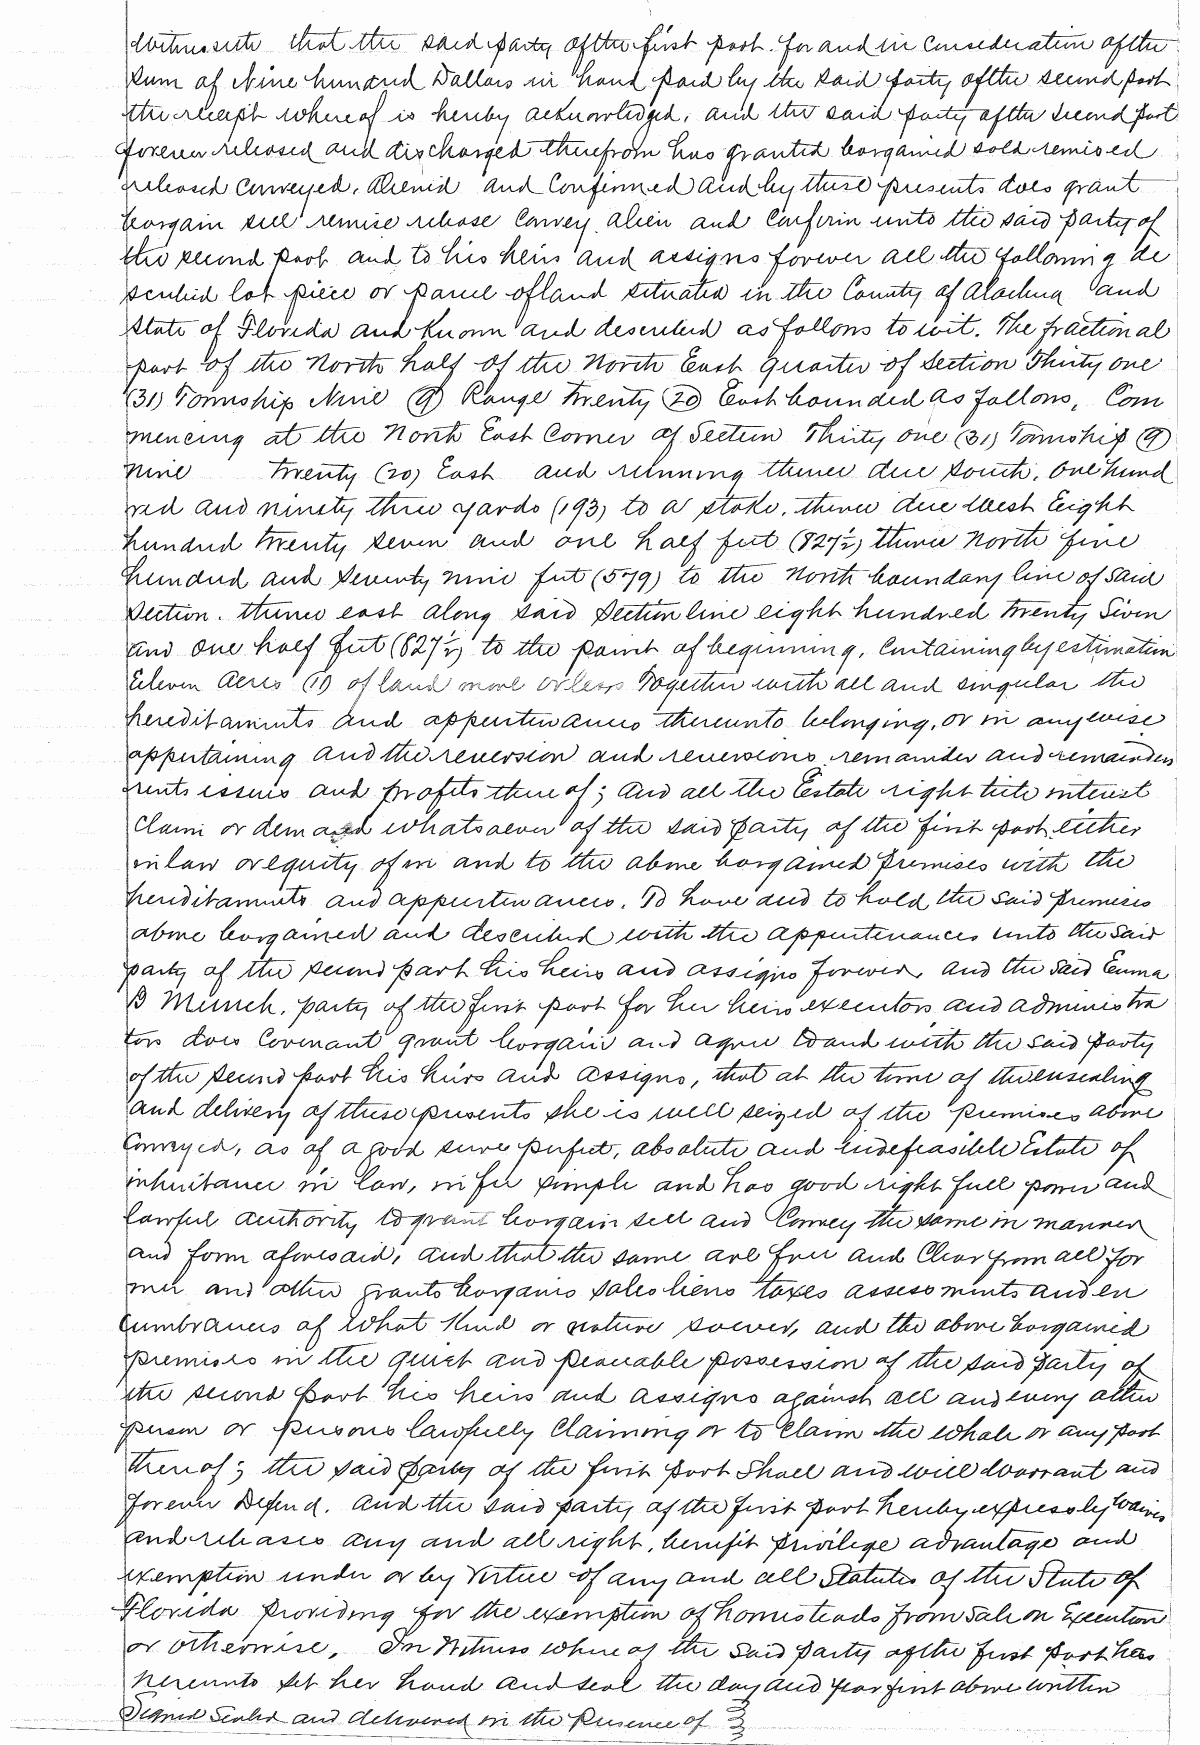 Witnesseth that the said party of the first part. for and in Consideration of the
sum of Nine hundred Dollars in hand paid by the said party of the second part
the receipt whereof is hereby acknowledged, and the said party of the second part
forever released and discharged therefrom has granted bargained sold remised
released conveyed, aliened and Confirmed and by these presents does grant
bargain sell remise release Convey alien and Confirm unto the said party of
the second part and to his heirs and assigns forever all the following de
scribed lot piece or parcel of land situated in the County of Alachua and
State of Florida and known and described as follows to wit. The fractional
part of the North half of the North East quarter of Section Thirty one
(31) Township Nine (9) Range Twenty (20) East bounded as follows, Com
mencing at the North East Corner of Section Thirty one (31) Township (9)
Nine Twenty (20) East and running thence due south, one hund
red and ninety three yards (193) to a stake, thence due West Eight
hundred twenty seven and one half feet (827½) thence North five
hundred and seventy nine feet (579) to the North boundary line of said
Section. thence east along said Section line eight hundred twenty Seven
and one half feet (827½) to the point of beginning, Containing by estimation
Eleven Acres (11) of land more or less Together with all and singular the
hereditaments and appurtenances thereunto belonging, or in anywise
appertaining and the reversion and reversions remainder and remainders
rents issues and profits thereof; and all the Estate right title interest
Claim or demand whatsoever of the said party of the first part either
in law or equity of in and to the above bargained premises with the
hereditaments and appurtenances. To have and to hold the said premises
above bargained and described with the appurtenances unto the said
party of the second part his heirs and assigns forever, and the said Emma
B Munch, party of the first part for her heirs executors and administra
tors does Covenant grant bargain and agree to and with the said party
of the second part his heirs and assigns, that at the time of the ensealing
and delivery of these presents she is well seized of the premises above
Conveyed, as of a good sure perfect, absolute and indefeasible Estate of
inheritance in law, in fee simple and has good right full power and
lawful authority to grant bargain sell and Convey the same in manner
and form aforesaid, and that the same are free and Clear from all for
mer and other grants bargains sales liens taxes assessments and en
Cumbrances of what kind or nature soever, and the above bargained
premises in the quiet and peaceable possession of the said party of
the second part his heirs and assigns against all and every other
person or persons lawfully Claiming or to Claim the whole or any part
thereof; the said party of the first part Shall and will Warrant and
forever Defend. And the said party of the first part hereby expressly waives
and releases any and all right, benefit privilege advantage and
exemption under or by Virtue of any and all Statutes of the State of
Florida providing for the exemption of homesteads from Sale on Execution
or otherwise. In Witness whereof the said party of the first part has
hereunto set her hand and seal the day and year first above written
Signed Sealed and delivered in the Presence of }